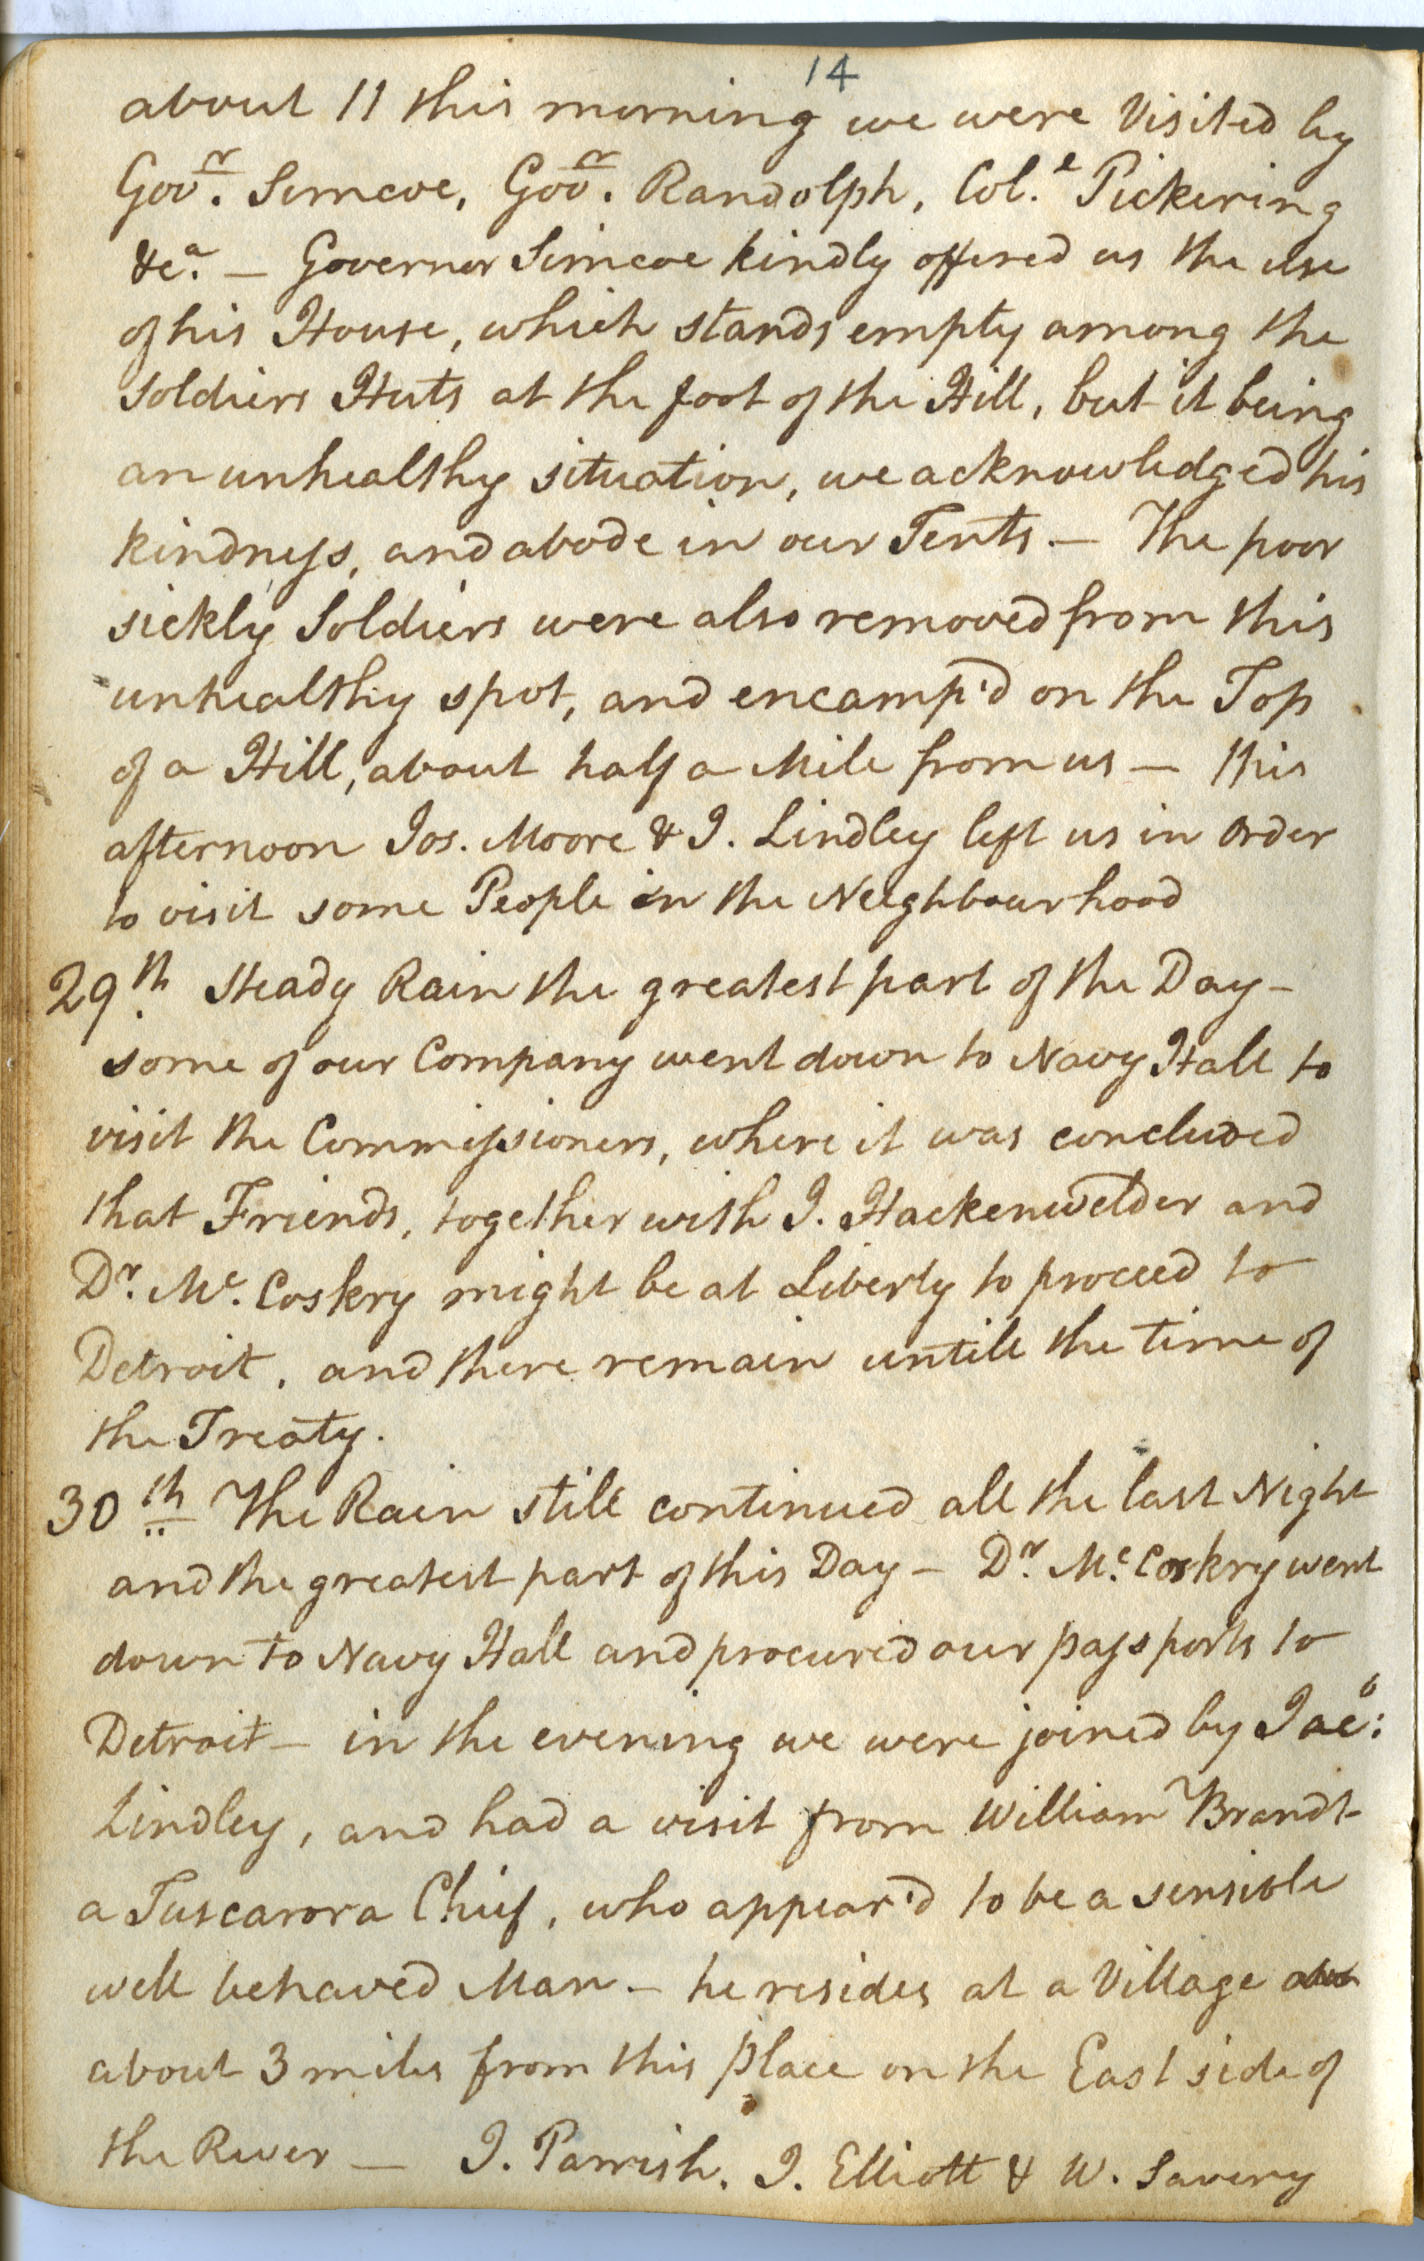 14
about 11 this morning we were Visited by
Govr. Simcoe, Govr. Randolph, Col.l Pickering
&ca. — Governor Simcoe kindly offered us the use
of his House, which stands empty among the
Soldiers Huts at the foot of the Hill, but it being
an unhealthy situation, we acknowledged his
kindness, and abode in our Tents. — The poor
sickly Soldiers were also removed from this
unhealthy spot, and encamp'd on the Top
of a Hill, about half a Mile from us — this
afternoon Jos. Moore & J. Lindley left us in Order
to visit some People in the Neighbourhood
29th. Steady Rain the greatest part of the Day —
some of our Company went down to Navy Hall to
visit the Commissioners, where it was concluded
that Friends, together with J. Hackenwelder and
Dr. Mc. Coskry might be at Liberty to proceed to
Detroit, and there remain untill the time of
the Treaty.
30th The Rain still continued all the last Night
and the greatest part of this Day — Dr. Mc. Coskry went
down to Navy Hall and procured our passports to
Detroit — in the evening we were joined by Jacb:
Lindley, and had a visit from William Brandt
a Tuscarora Chief, who appear'd to be a sensible
well behaved Man — he resides at a Village
about 3 miles from this place on the East side of
the River — J. Parrish, J. Elliott & W. Savery